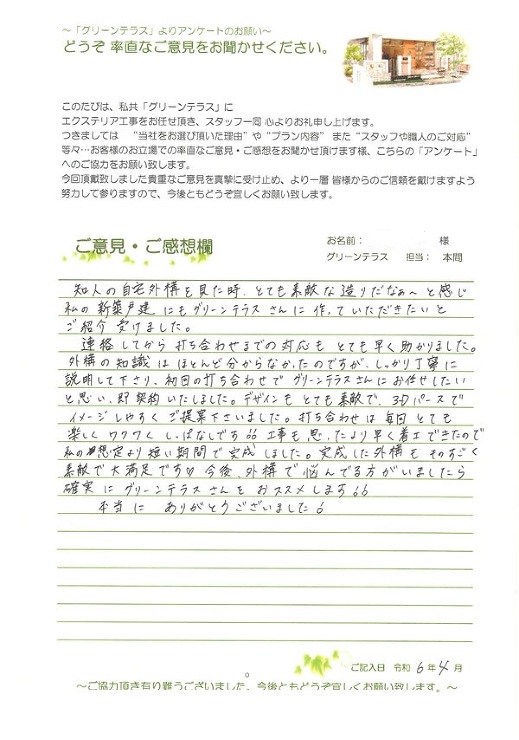 ～「グリーンテラス」よりアンケートのお願い～
どうぞ 率直なご意見をお聞かせください。
このたびは、私共「グリーンテラス」に
エクステリア工事をお任せ頂き、スタッフ一同 心よりお礼申し上げます。
つきましては “当社をお選び頂いた理由”や“プラン内容” また“スタッフや職人のご対応”
等々…お客様のお立場での率直なご意見・ご感想をお聞かせ頂けます様、こちらの「アンケート」
へのご協力をお願い致します。
今回頂戴致しました貴重なご意見を真摯に受け止め、より一層 皆様からのご信頼を戴けますよう
努力して参りますので、今後ともどうぞ宜しくお願い致します。
ご意見・ご感想欄
お名前： 様
グリーンテラス 担当： 本間
知人の自宅外構を見た時、とても素敵な造りだなぁ～と感じ
私の新築戸建にもグリーンテラスさんに作っていただきたいと
ご紹介受けました。
連絡してから打ち合わせまでの対応もとても早く助かりました。
外構の知識はほとんど分からなかったのですが、しっかり丁寧に
説明して下さり、初回の打ち合わせでグリーンテラスさんにお任せしたい
と思い、即契約いたしました。デザインもとても素敵で、3Dパースで
イメージしやすくご提案下さいました。打ち合わせは毎回とても
楽しくワクワクしっぱなしです 工事も思ったより早く着工できたので
私の想定より短い期間で完成しました。完成した外構もものすごく
素敵で大満足です♡今後、外構で悩んでる方がいましたら
確実にグリーンテラスさんをおススメします
本当に ありがとうございました
ご記入日 令和 6年 4月
～ご協力頂き有り難うございました。今後ともどうぞ宜しくお願い致します。～